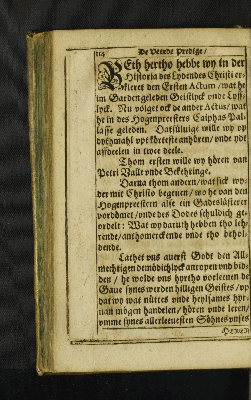 114 De Veerde Predige/
BEth hertho hebbe wy in der
Historia des Lydendes Christi er-
kleret den Ersten Actum / wat he
im Gardengeleden Geistlyck vnde Lyff-
lyck. Nu volget ock de ander Actus / wat
he in des Hogenpreesters Caiphas Pal-
lasse geleden. Datsüluige wille wy vp
dythmahl vpt körteste anhören / vnde ydt
affdeelen in twee deele.
Thom ersten wille wy hören van
Petri Valle vnde Bekehringe.
Darna thom andern / wat sick wy-
der mit Christo begeuen / wo he van den
Hogenpreestern alse ein Gadeslästerer
vordömet / vnde des Dodes schuldich ge-
ordelt: Wat wy daruth hebben tho leh-
rende / anthomerckende vnd tho behol-
dende.
Lathet vns auerst Godt den All-
mechtigen demödichlyck anropen vnd bid-
den / he wolde vns hyrtho vorleenen de
Gaue synes werden hilligen Geistes / vp
dat wy wat nüttes vnde heylsames hyr-
uan mögen handelen / hören vnde leren /
vmme synes allerleeuesten Söhnes vnses
Heren